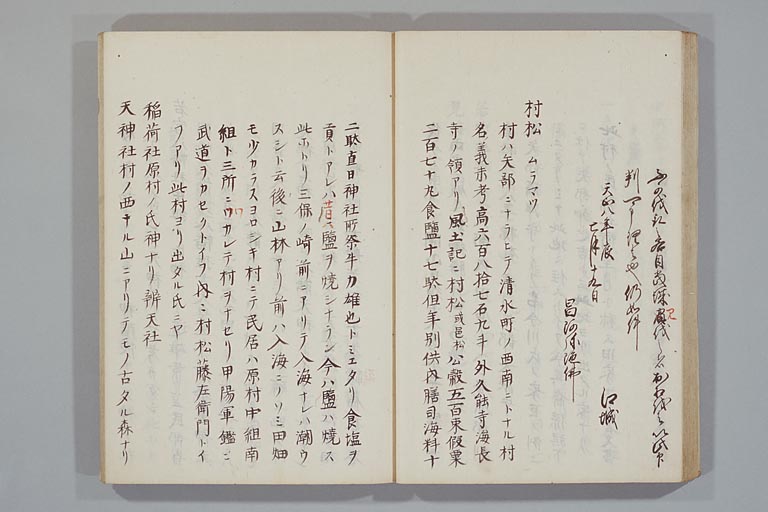 判
天正八年辰
七月十九日
江城
村松 ムラマツ
村ハ矢部ニナラヒテ清水町ノ西南ニトナル村
名義未考高六百八拾七石九斗外久能寺海長
寺ノ領アリ風土記ニ村松或邑松公穀五百束假粟
二百七十九食鹽十七駄但年別供内膳司海料十
二駄直日神社所祭牛力雄也トミエタリ食塩ヲ
貢トアレハ昔ハ鹽ヲ焼シナラン今ハ鹽ハ焼ス
此ホトリ三保ノ崎前ニアリテ入海ナレハ潮ウ
スシト云後ニ山林アリ前ハ入海ニノソミ田畑
モ少カラスヨロシキ村ニテ民居ハ原村中組南
組ト三所ニワカレテ村ヲナセリ甲陽軍鑑ニ
武道ヲカセクトイフ内ニ村松藤左衛門トイ
フアリ此村ヨリ出タル氏ニヤ
稲荷社原村ノ氏神ナリ辨天社
天神社村ノ西キル山ニアリテモノ古タル森ナリ